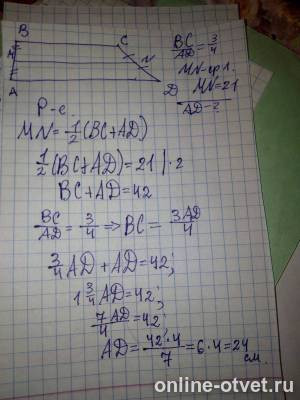 B
C
M
N
A
D
BC/AD = 3/4
MN-ср.л.
MN=21
AD-?
Р-е.
MN = 1/2(BC+AD)
1/2(BC+AD)=21 |·2
BC+AD=42
BC/AD = 3/4 ⇒ BC = 3AD/4
3/4AD + AD = 42;
1 3/4 AD = 42;
7AD/4 = 42;
AD = 42·4/7 = 6·4 = 24 см.
online-otvet.ru